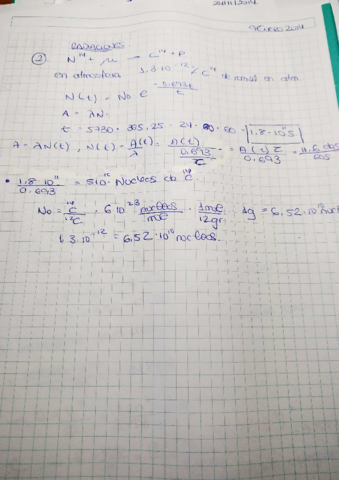 9 Enero 2014
②
N¹⁴ + μ → C¹⁴ + P
en atmosfera 1.3·10⁻¹² C¹⁴ en atm
N(t) = No e^(-0.693t/τ)
A = λN
t = 5730 · 365,25 · 24 · 60 · 60 = 1.8·10¹¹ s
A = λN(t), N(t) = A(t)/λ = A(t)/(0.693/τ) = A(t) τ/0.693 =
• 1.8·10¹¹/0.693 = Nucleos de ¹⁴C
No = ¹⁴C/¹²C · 6·10²³ nucleos/mol · 1mol/12gr · 1g = 6,52·10¹⁰
1.3·10⁻¹² = 6,52·10¹⁰ nucleos.